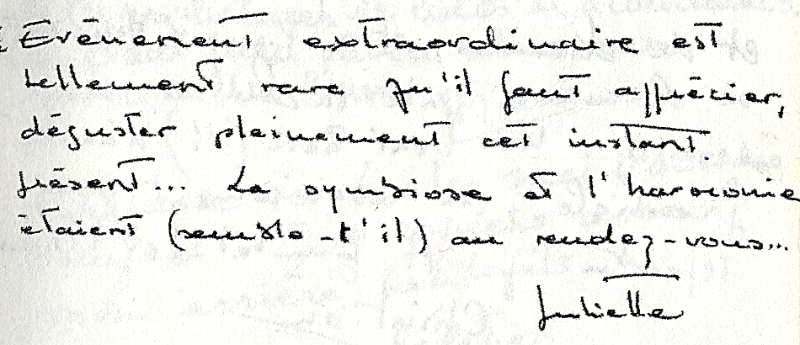 Evènement extraordinaire est
tellement rare qu'il faut apprécier,
déguster pleinement cet instant
présent... La symbiose et l'harmonie
étaient (semble-t'il) au rendez-vous...
Juliette